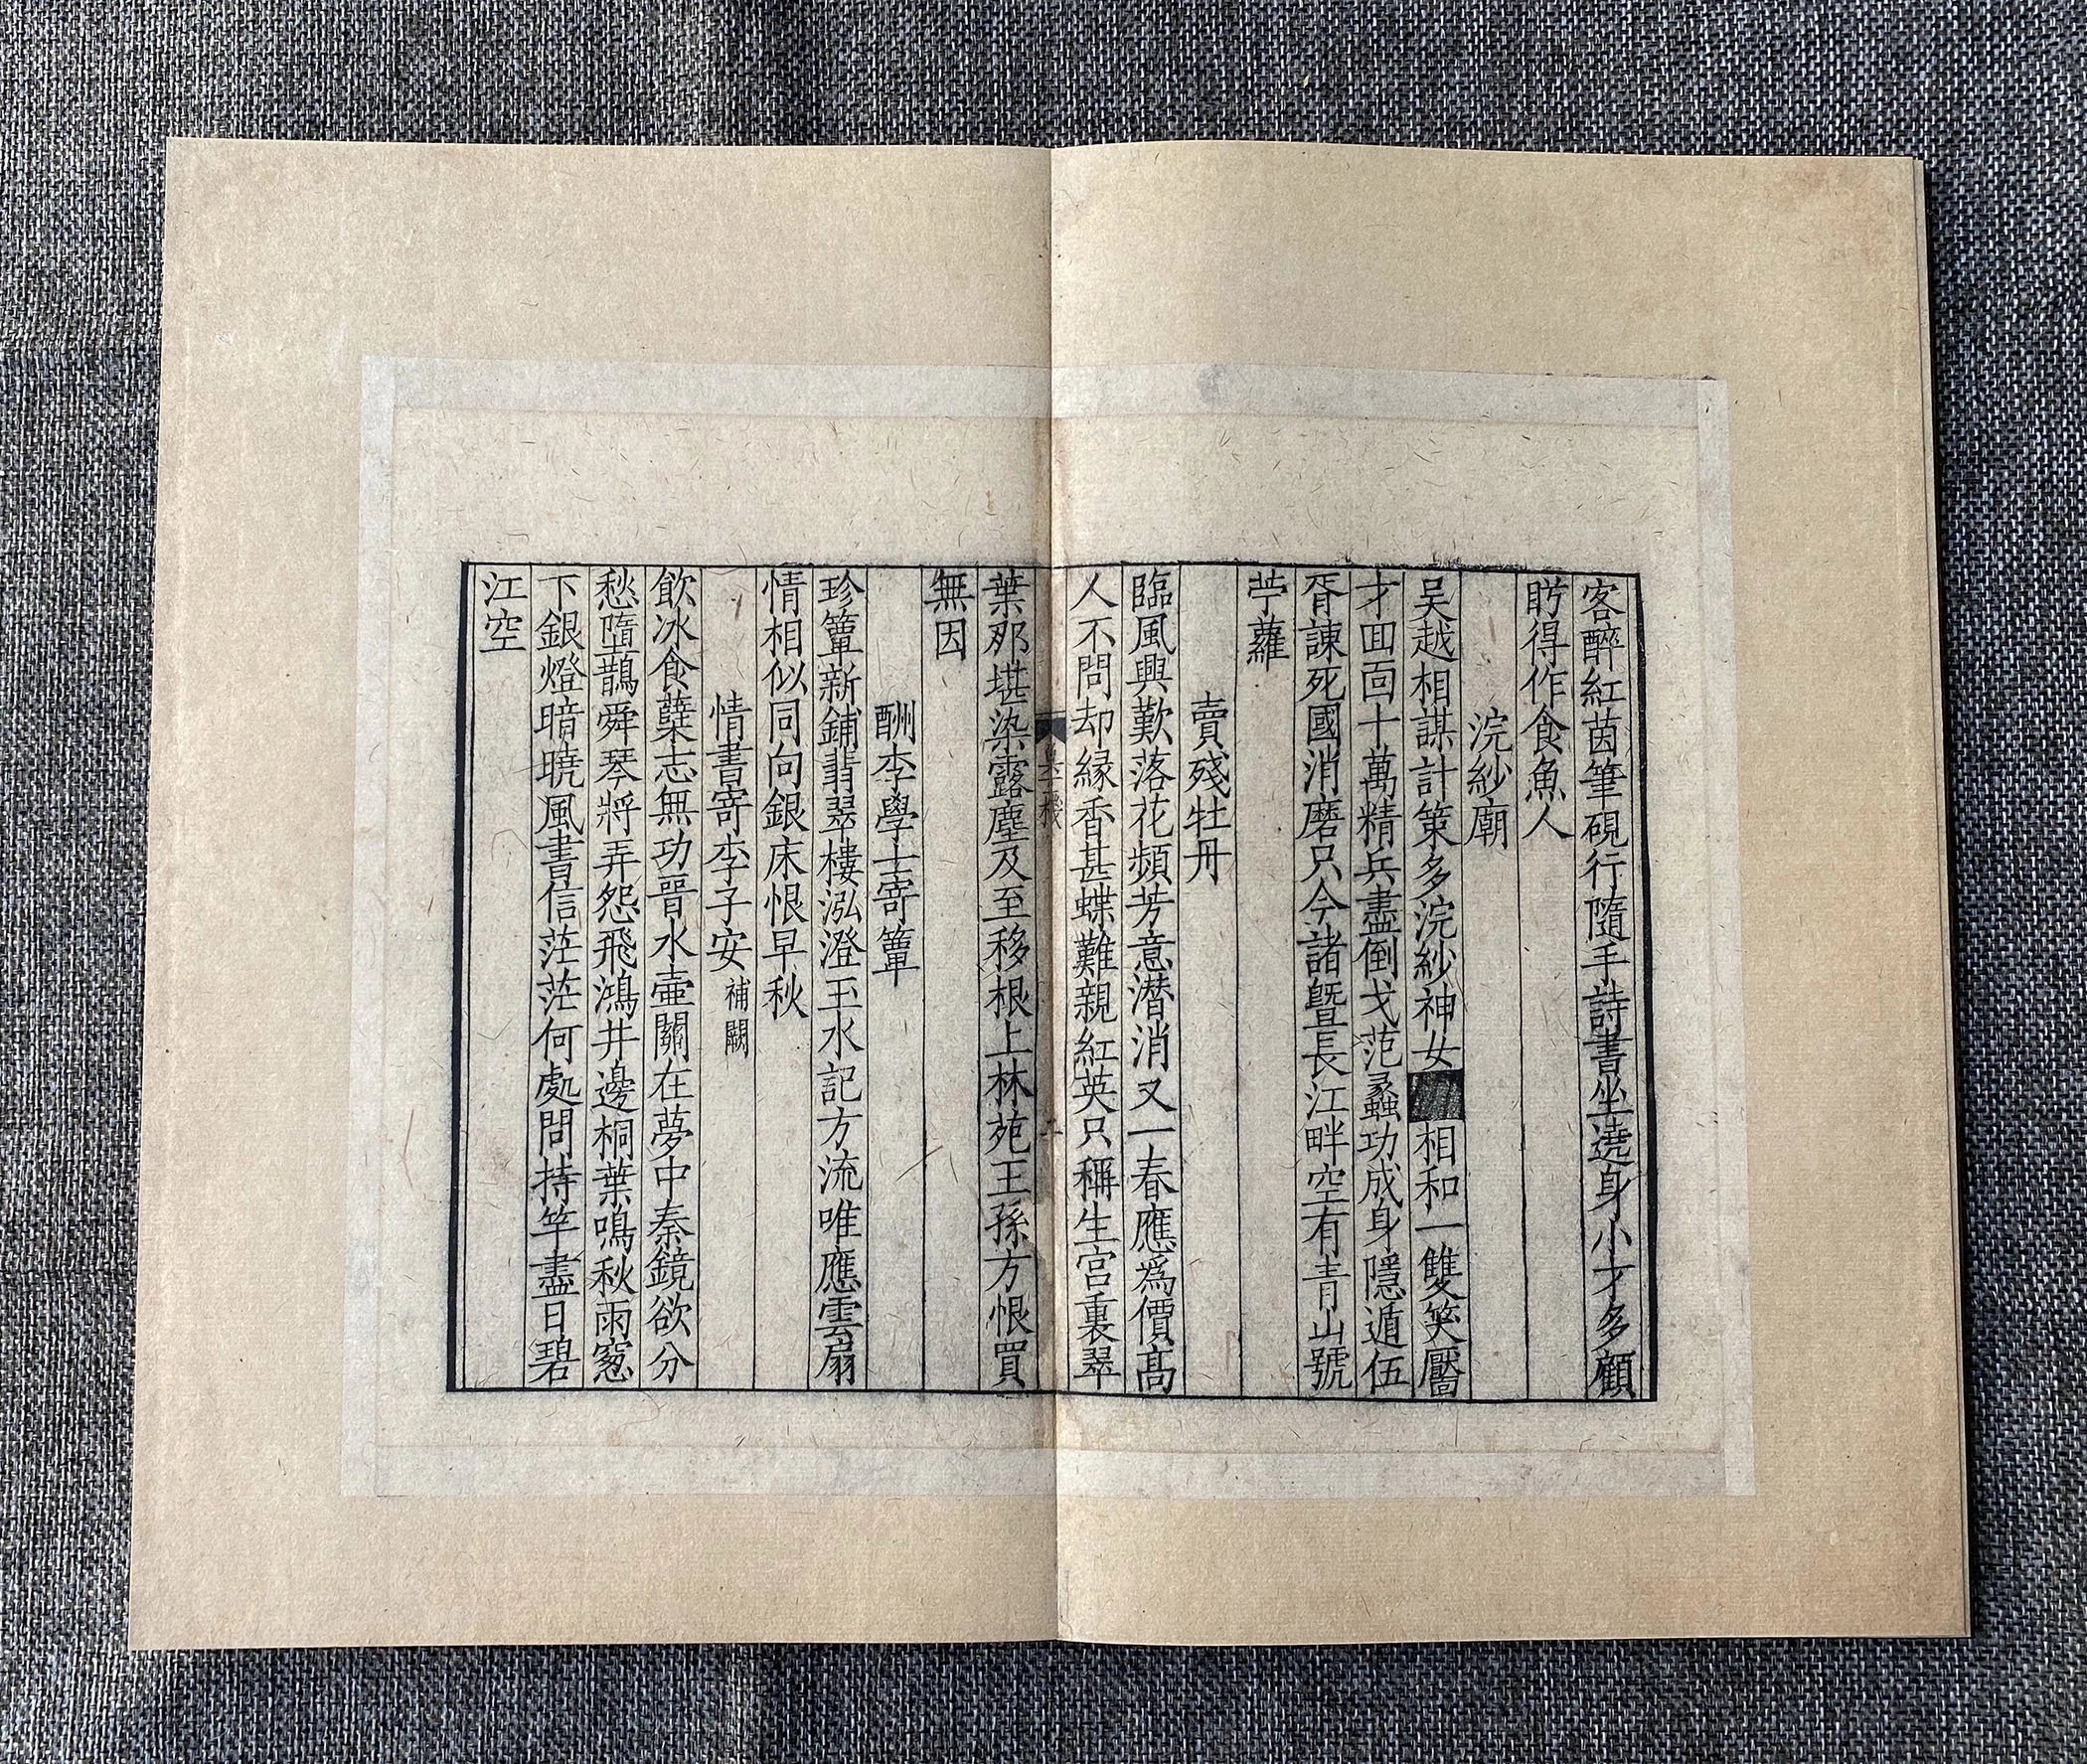 客醉紅茵筆硯行隨手詩書坐遶身小才多顧
眄得作食魚人
浣紗廟
吴越相謀計策多浣紗神女■相和一雙笑靨
才囬面十萬精兵盡倒戈范蠡功成身隱遁伍
胥諫死國消磨只今諸曁長江畔空有青山號
苧蘿
賣殘牡丹
臨風興歎落花頻芳意潜消又一春應爲價髙
人不問却縁香甚蝶難親紅英只稱生宫裏翠
葉那堪染露塵及至移根上林苑王孫方恨買
無因
酬李學士寄簟
珍簟新鋪翡翠樓泓澄玉水記方流唯應雲扇
情相似同向銀床恨早秋
情書寄李子安 補闕
飲冰食蘗志無功晉水壷關在夢中秦鏡欲分
愁墮鵲舜琴將弄怨飛鴻井邊桐葉鳴秋雨窓
下銀燈暗曉風書信茫茫何處問持竿盡日碧
江空